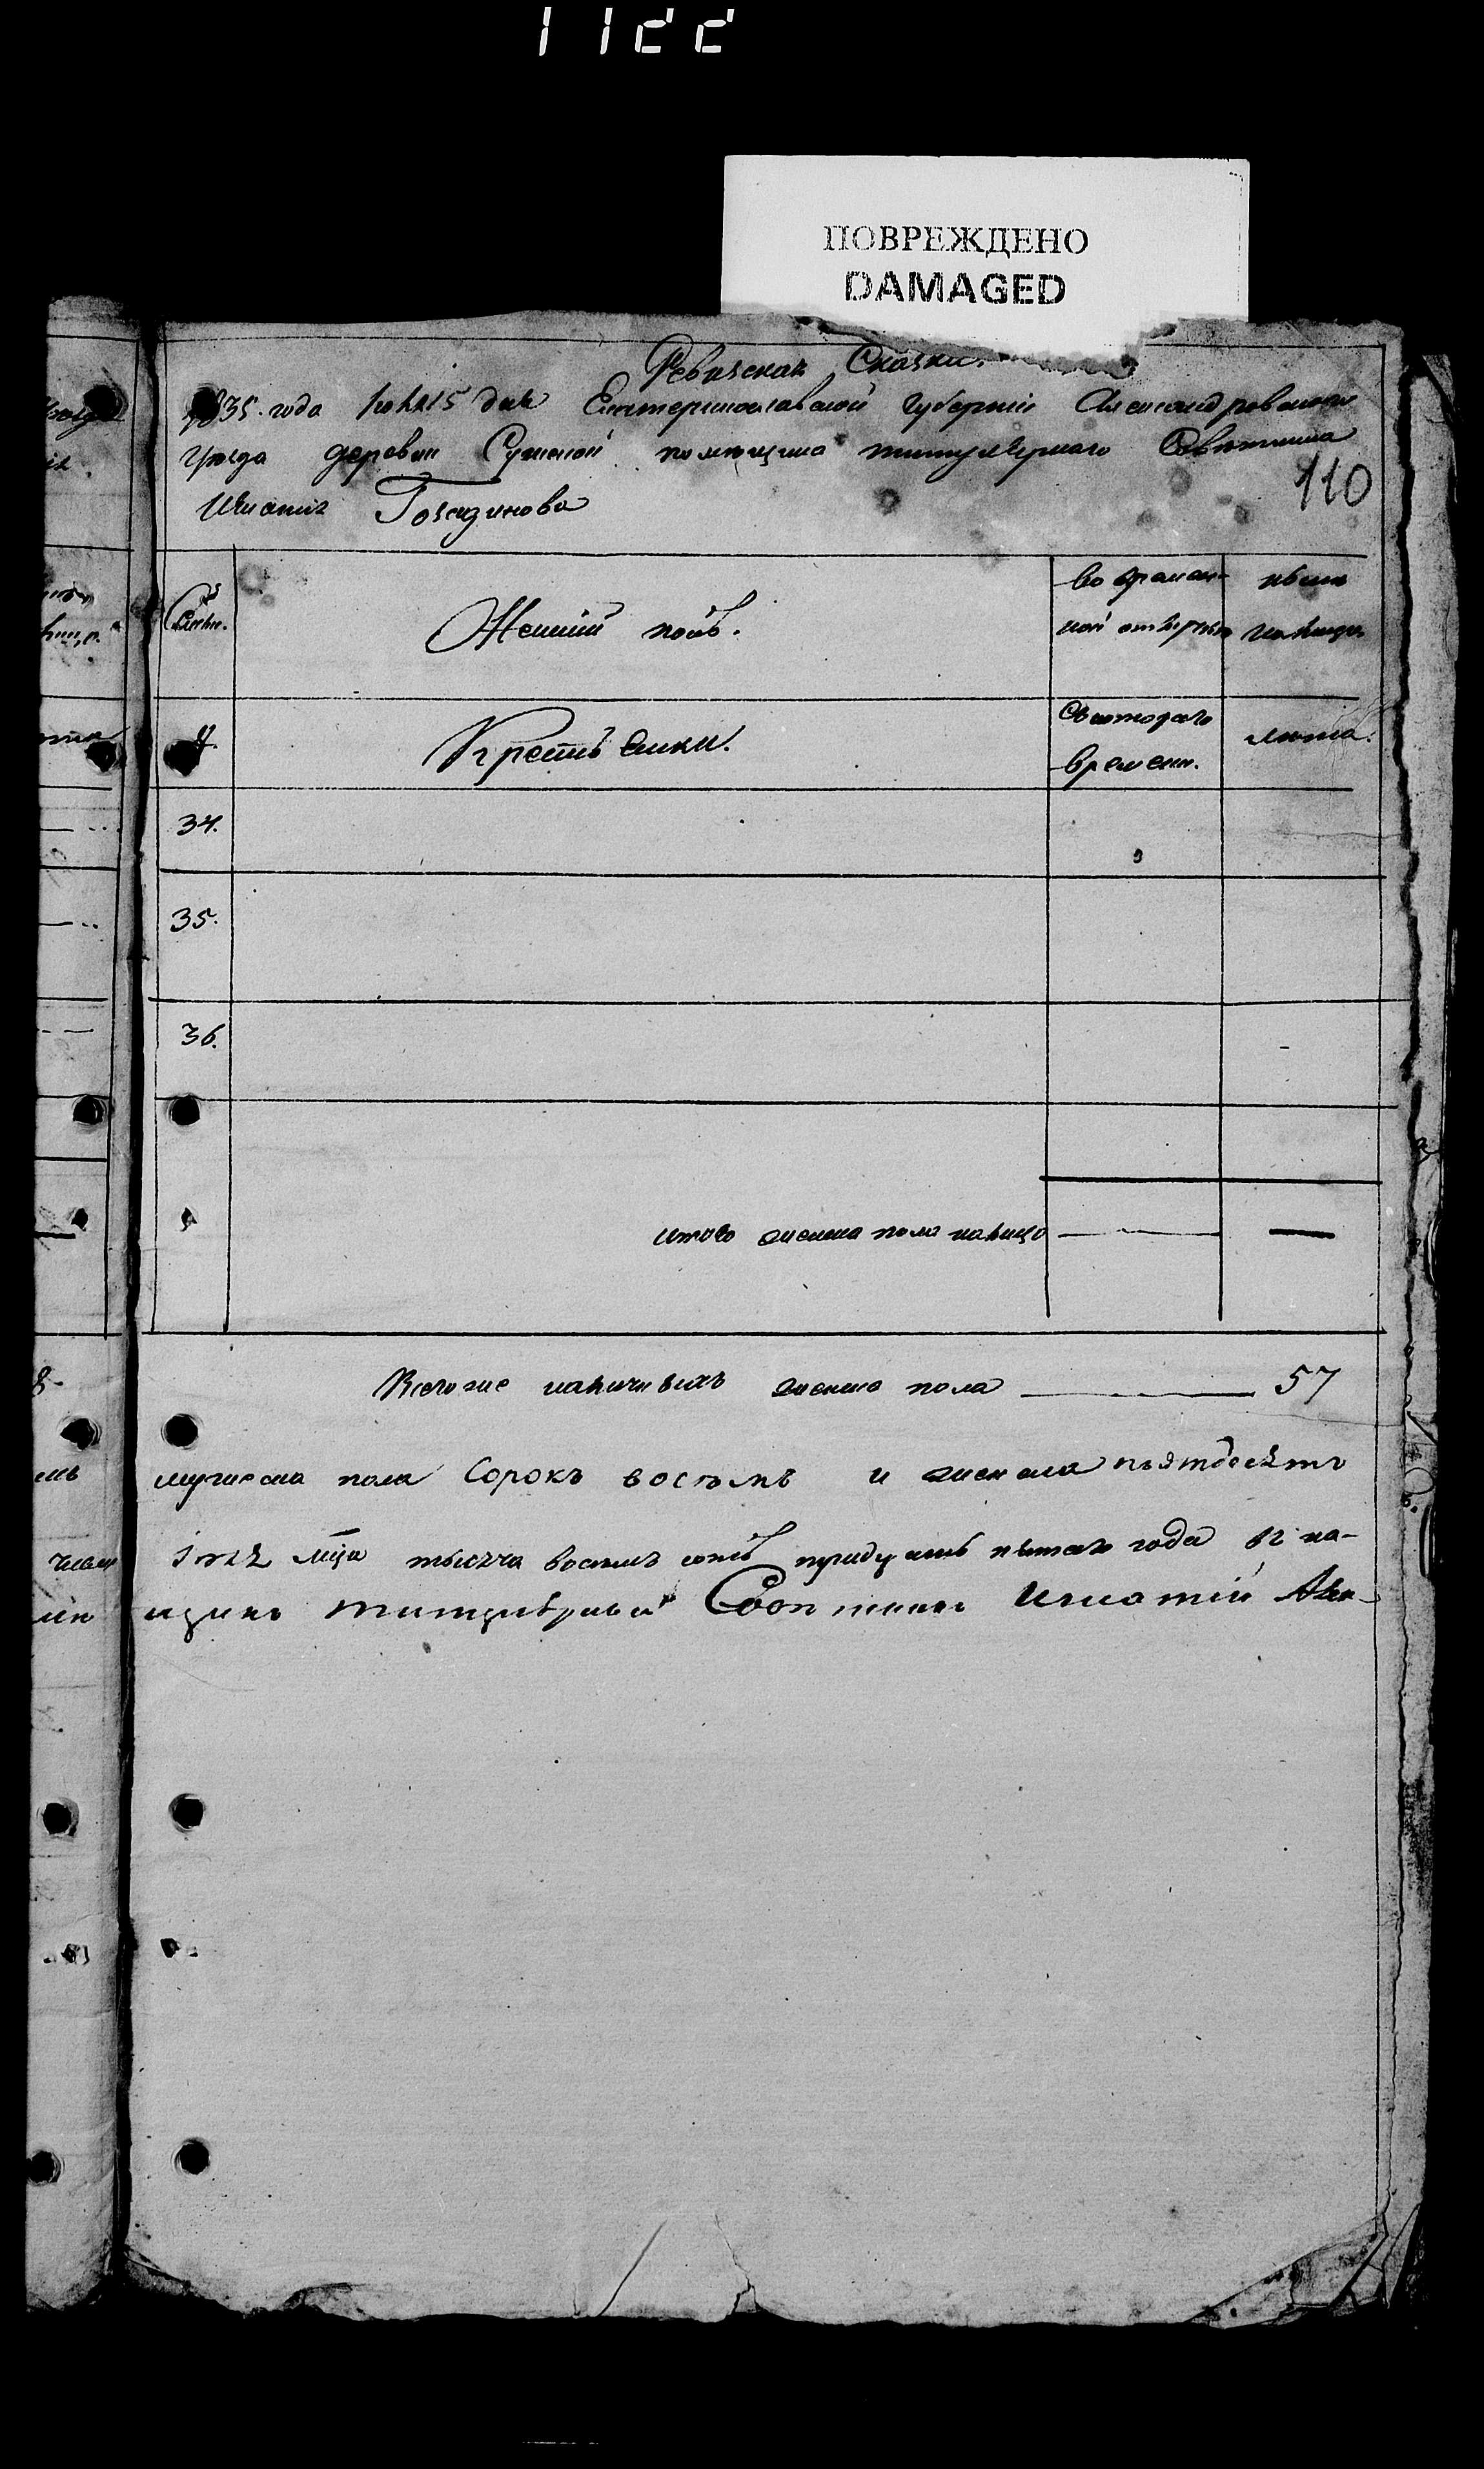 1122
ПОВРЕЖДЕНО
DAMAGED
Ревизская Сказка.
1835. года Іюля 15 дня Екатеринославской Губерніи Александровскаго
уезда деревни Сушеной помещика титулярнаго Советника
Игнатія
110
Женскій полъ.
во времен-
ной отлучке
ныне
на лицо
Крестьянки.
Съ котораго
времени.
лета.
34.
35.
36.
итого женска пола налицо
Всего же наличныхъ женска пола 57
мужеска пола Сорокъ восемь и женска пятдесятъ
Іюля мца тысяча восемь сотъ тридцать пятаго года къ на-
щикъ титулярный Советникъ Игнатій